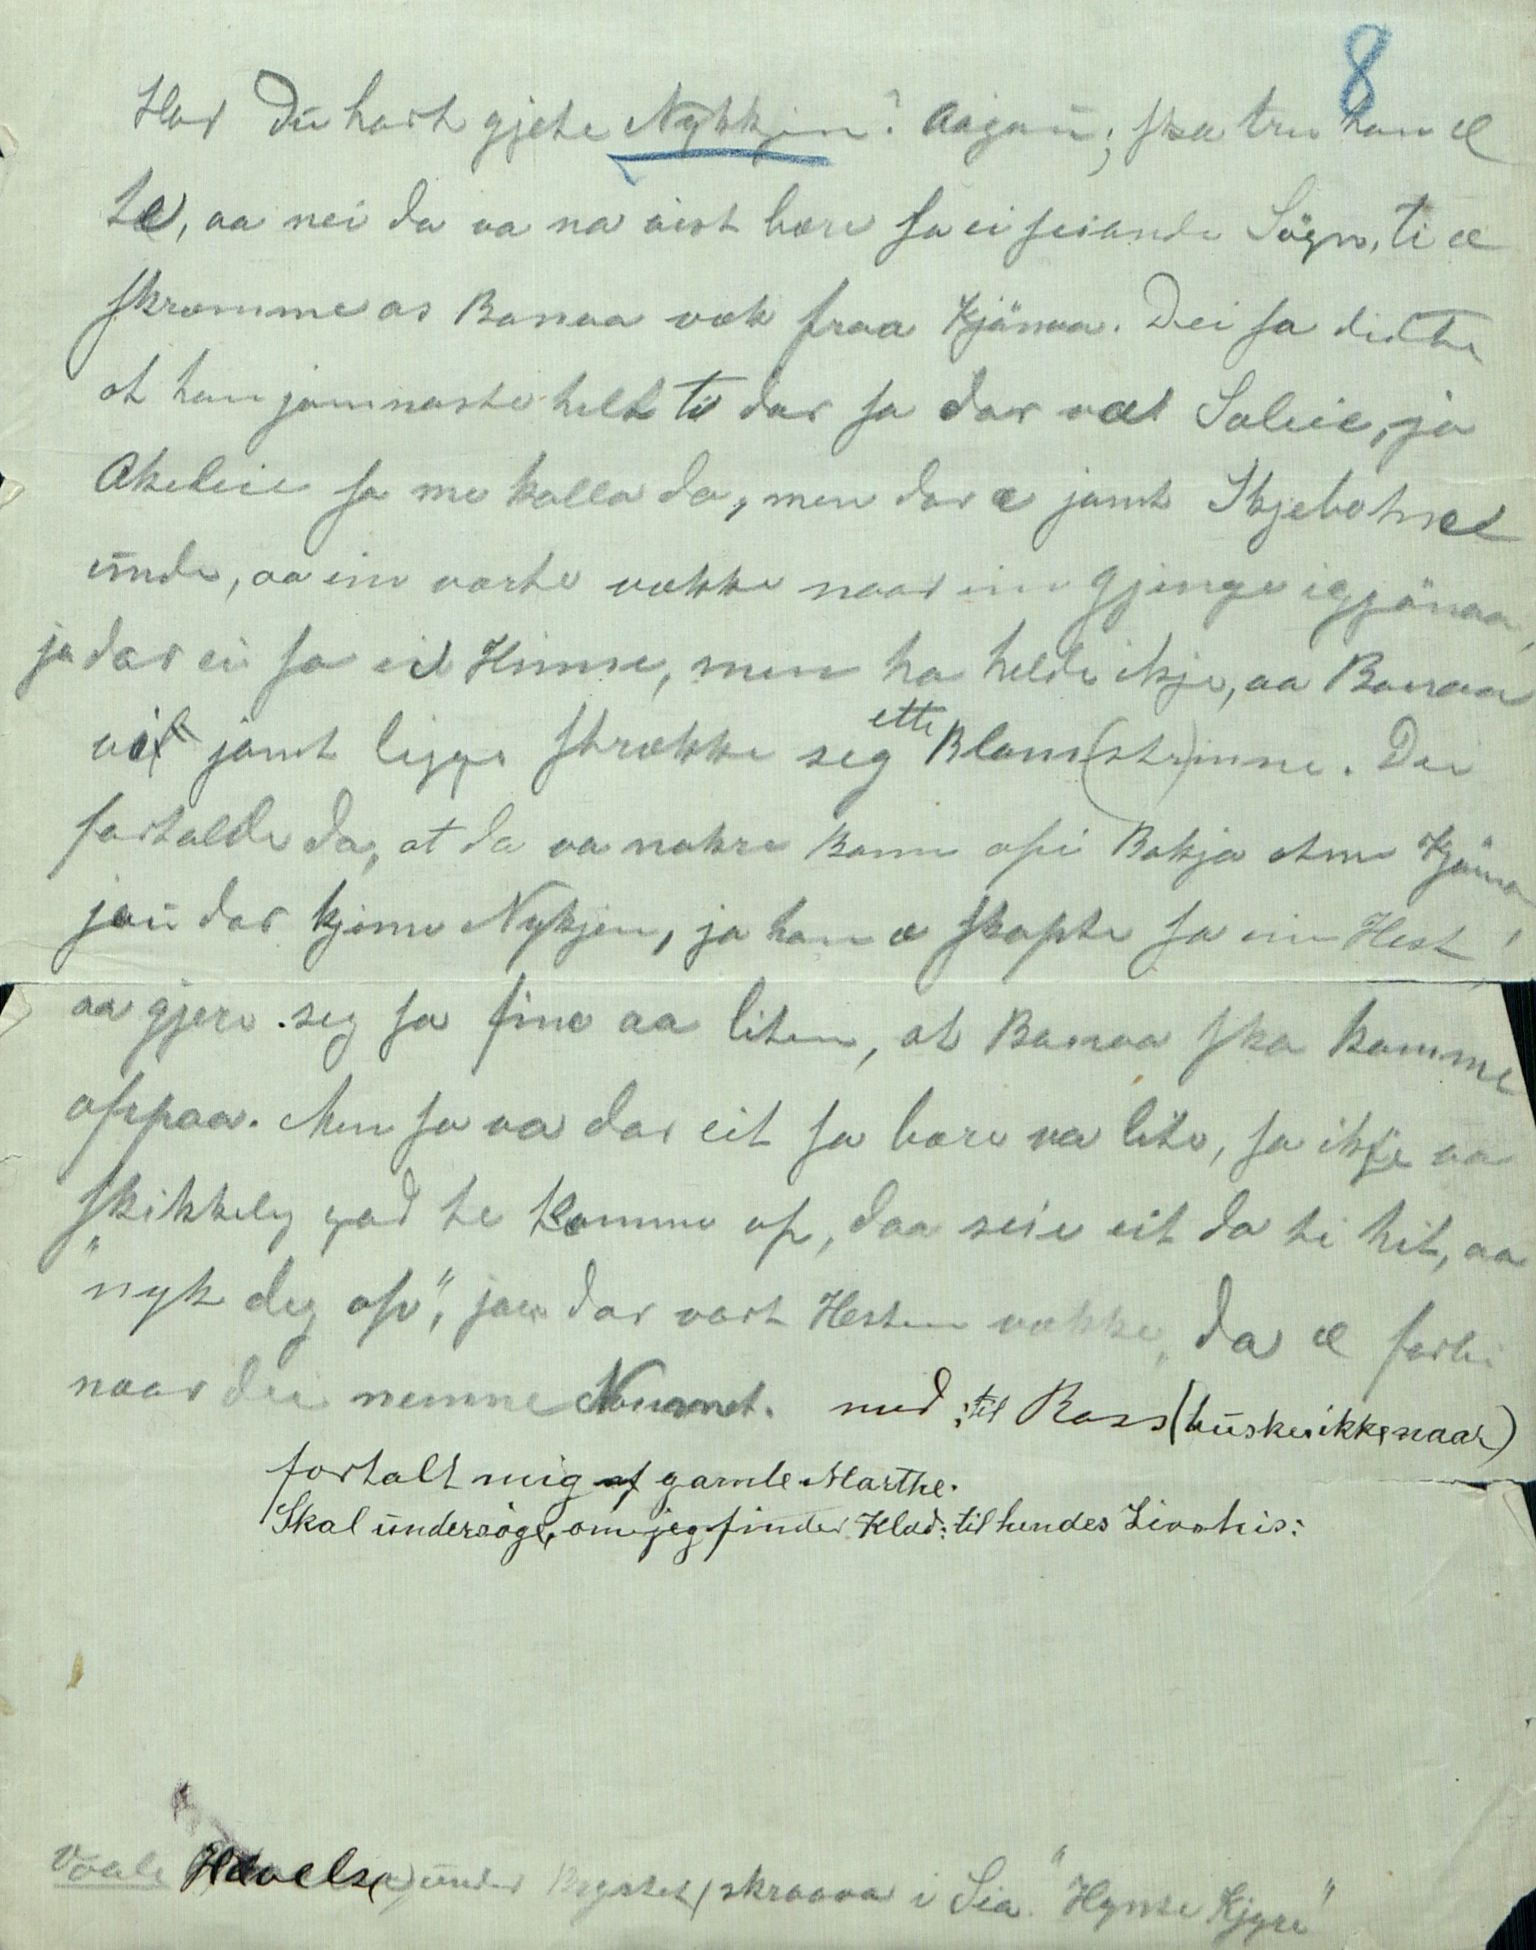 8
Har Du hørt gjete Nykkjen? Aajau; ska tru han æ
te, aa nei da va na vist bere sa ei seiande Sögn, ti æ
skræmme os Banaa væk fraa Kjönaa. Dei sa ditte
at han jamnaste helt ti dar sa dar væt Soleie, ja
Akeleie sa me kalla da, men dar æ jamt
unde, aa ein varte vække naar ein gjenge igjönaa,
ja dar ei sa ei Hinne, men ha helde ikje, aa Banaa
vil jamt ligge strække seg ette Blom(str)inne. Dei
fortalde da, at da va nokre Bann opi Bakja
jau dar kjeme Nykjen, ja han æ skapte sa ein Hest,
aa gjere seg sa fine aa liten, at Banaa ska komme
oppaa. Men sa va dar eit sa bere va lite, sa ikje va
skikkeleg gad te komme op, daa seie eit da ti hit, aa
"nyk deg op", jau dar vart Hesten vække, da æ forbi
naar dei nemne Naunet. ned: til Ross (husker ikke naar)
fortalt mig af gamle Marthe.
Skal undersöge, om jeg finder Klad: til hendes Livshis:
Vaale under skraava i Sia. "Hynse Kjyre"